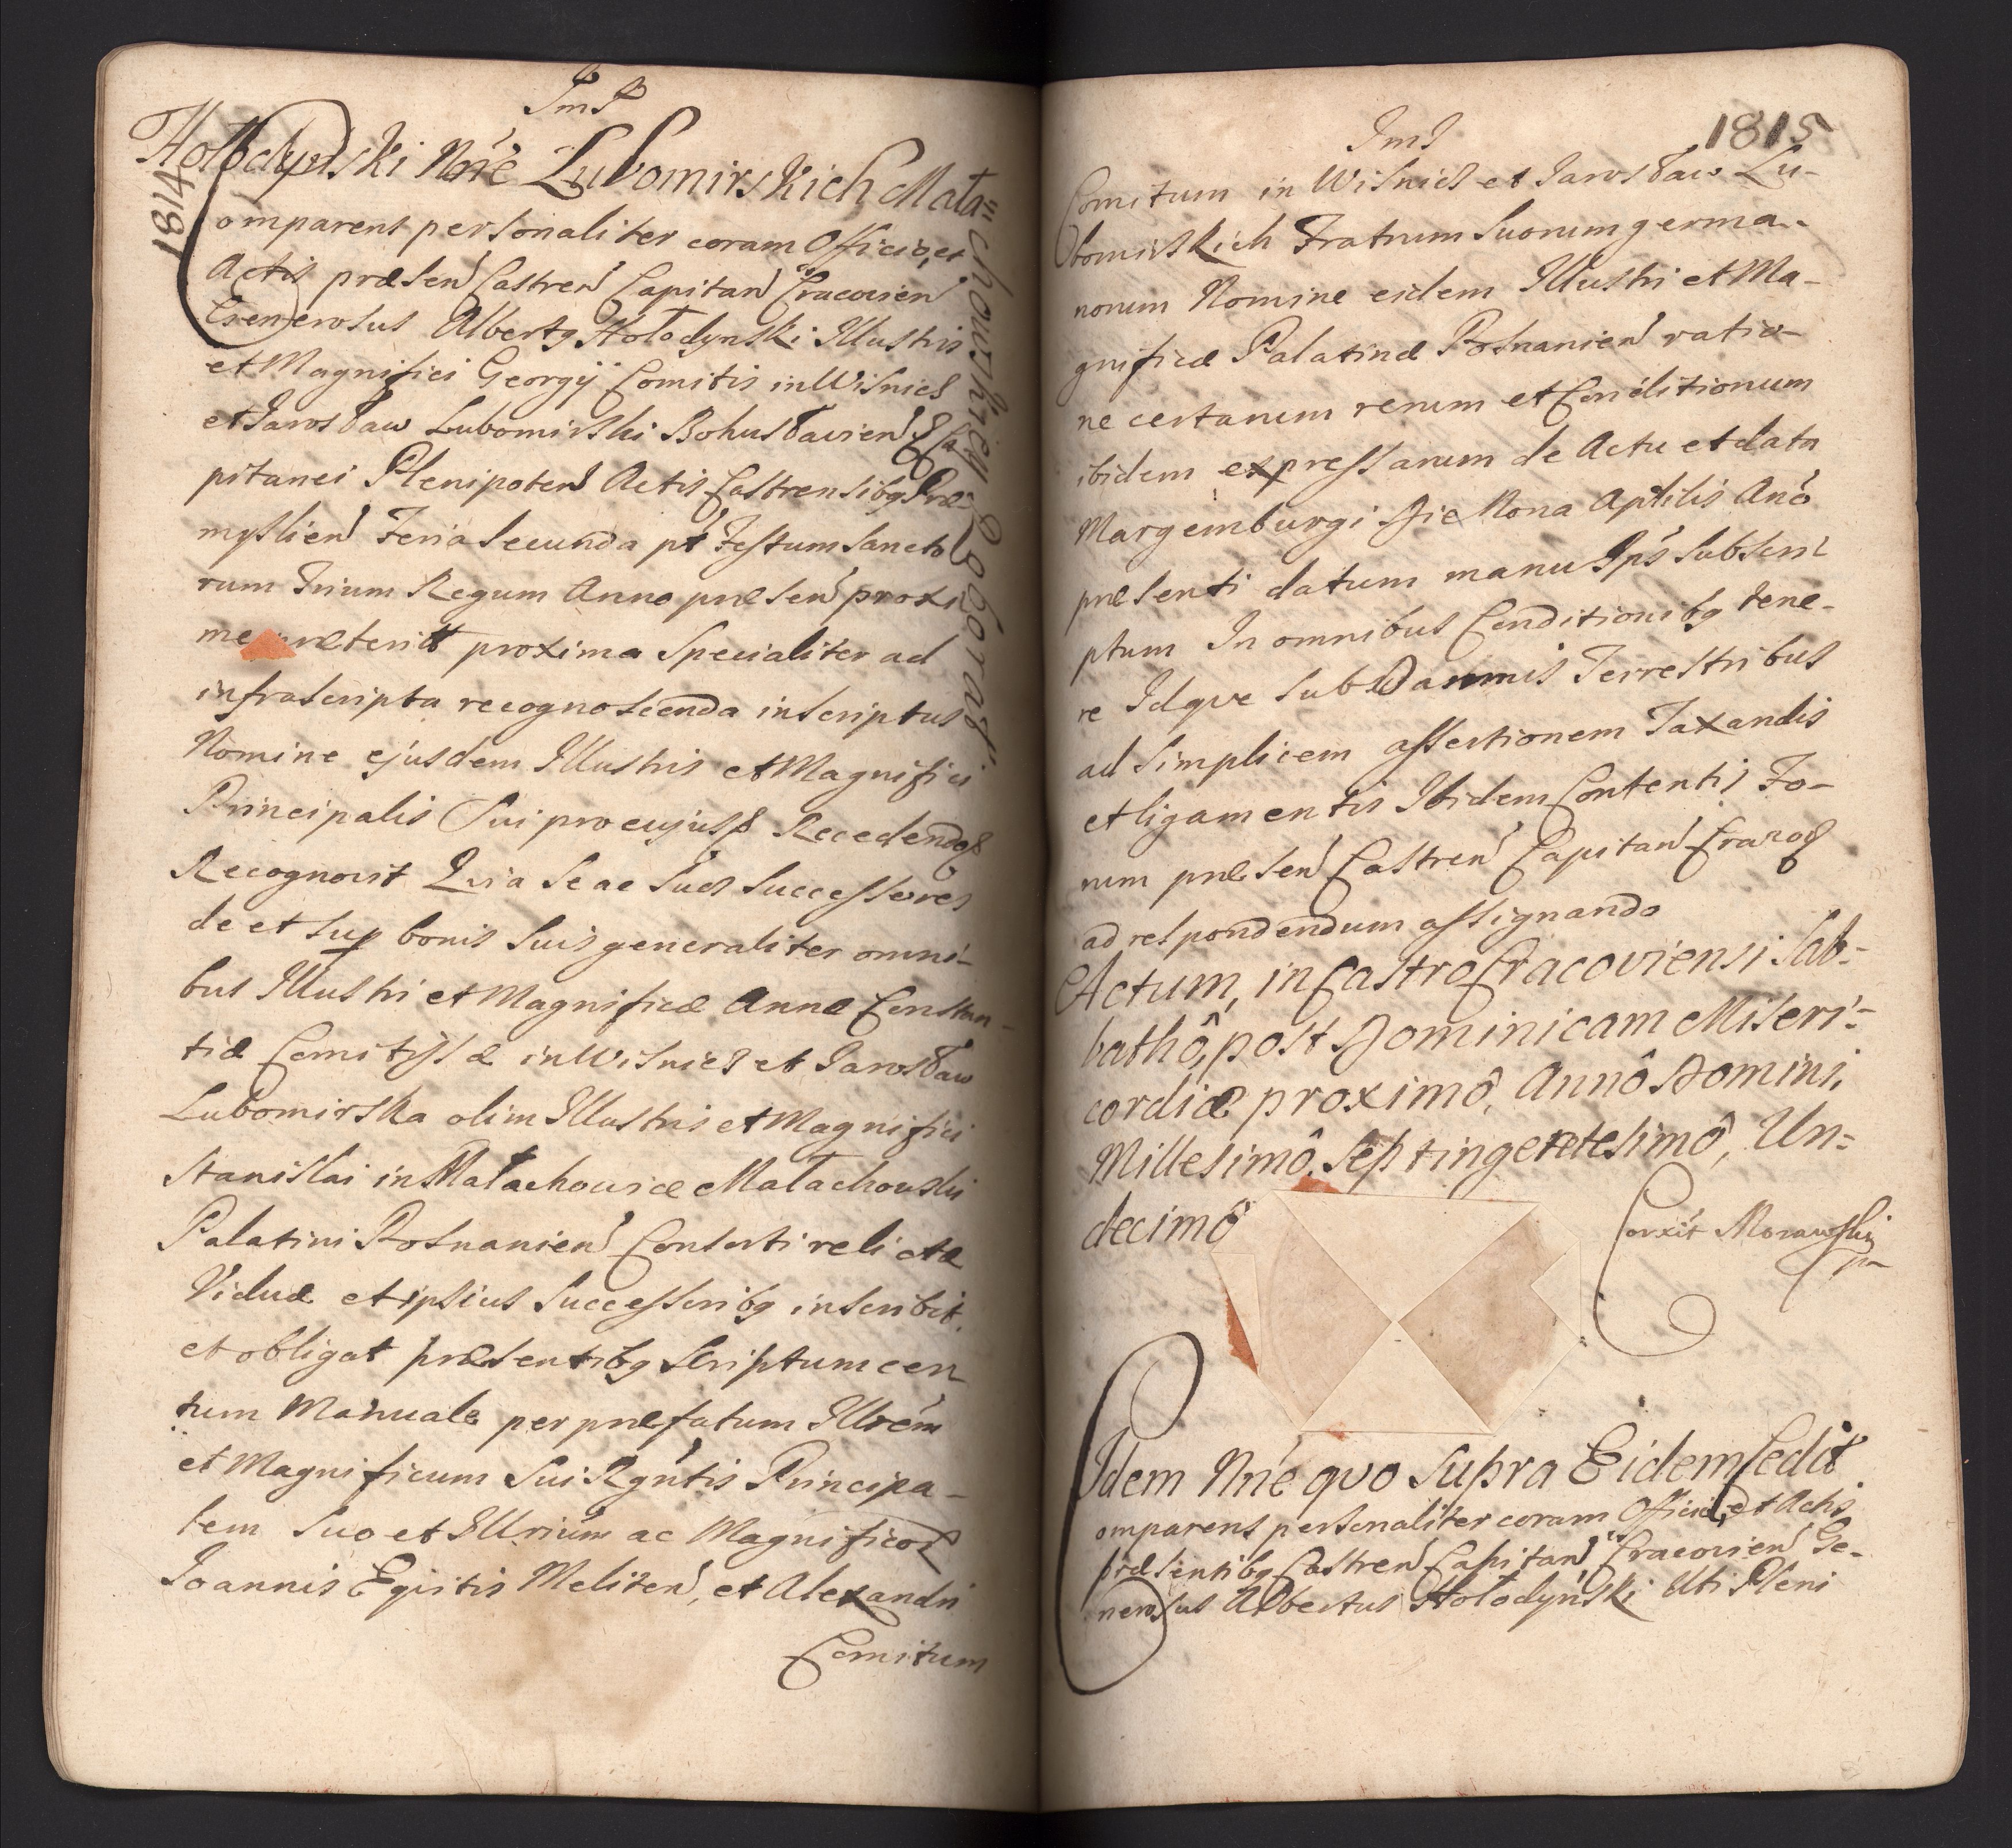 ImI
1814
Hołodyński Nõie Lubomirskich Mała=
chowskiey Roborat
omparens personaliter coram Officio, et
Actis præsen Castren Capitan Cracovien
Generosus Albertq Hołodynski Illustris
et Magnifici Georgij Comitis in Wisnicz
et Jarosław Lubomirski Bohusłavien Ca
pitanei Plenipotens Actis Castrensibq Præ=
myslien Feria Secunda pt Festum Sancto
rum Trium Regum Anno præsen proxi
me præterit proxima Specialiter ad
infrascripta recognoscenda inscriptus
Nomine ejusdem Illustris et Magnifici
Principalis Sui pro cujus Recedendo
Recognovit Quia Se ac Suos Successores
de et sup bonis Suis generaliter omni-
bus Illustri et Magnificæ Annæ Constan-
tiæ Comitissæ in Wisnicz et Jarosław
Lubomirska olim Illustris et Magnifici
Stanislai in Małachowice Małachowski
Palatini Posnanien Consorti relictæ
Viduæ et ipsius Successoribq inscribit.
et obligat præsentibq Scriptum cer
tum Manuale per præfatum Illrém
et Magnificum Sui Rgntis Principa-
lem Suo et Illrium ac Magnificor
Joannis Eqvitis Meliten, et Alexandri
Comitum
ImI
1815
Comitum in Wisnicz et Jarosław Lu-
bomirskich Fratrum Suorum germa-
norum Nomine eidem Illustri et Ma-
gnificæ Palatinæ Posnanien ratio-
ne certarum rerum et Conditionum
ibidem expressarum de Actu et data
Margemburgi Die Nona Aprilis Anõ
præsenti datum manu Ips Subscri
ptum In omnibus Conditionibq tene-
re Idqve Sub Damnis Terrestribus
ad Simplicem assertionem Taxandis
et ligamentis Ibidem Contentis Fo-
rum præsen Castren Capitan Cracov
ad respondendum assignando
Actum, in Castro Cracoviensi Sab-
bathô, post Dominicam Miseri=
cordiæ proximô, Annô Domini,
Millesimô, Septingentesimô, Un=
decimô
Corxit Morawski
mp
Idem Nõie qvo Supra Eidem Cedit
omparens personaliter coram Officio, et Actis
præsentibq Castren Capitan Cracovien Ge-
nerosus Albertus Hołodyński Uti Pleni